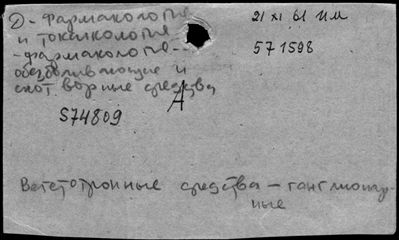 Д - Фармакология
и токсикология
-фармакология--
обезболивающие и
снотворные средства
А
S74809
21 XI 61 ИМ
571598
Вегетотропные средства - ганглионар-
ные